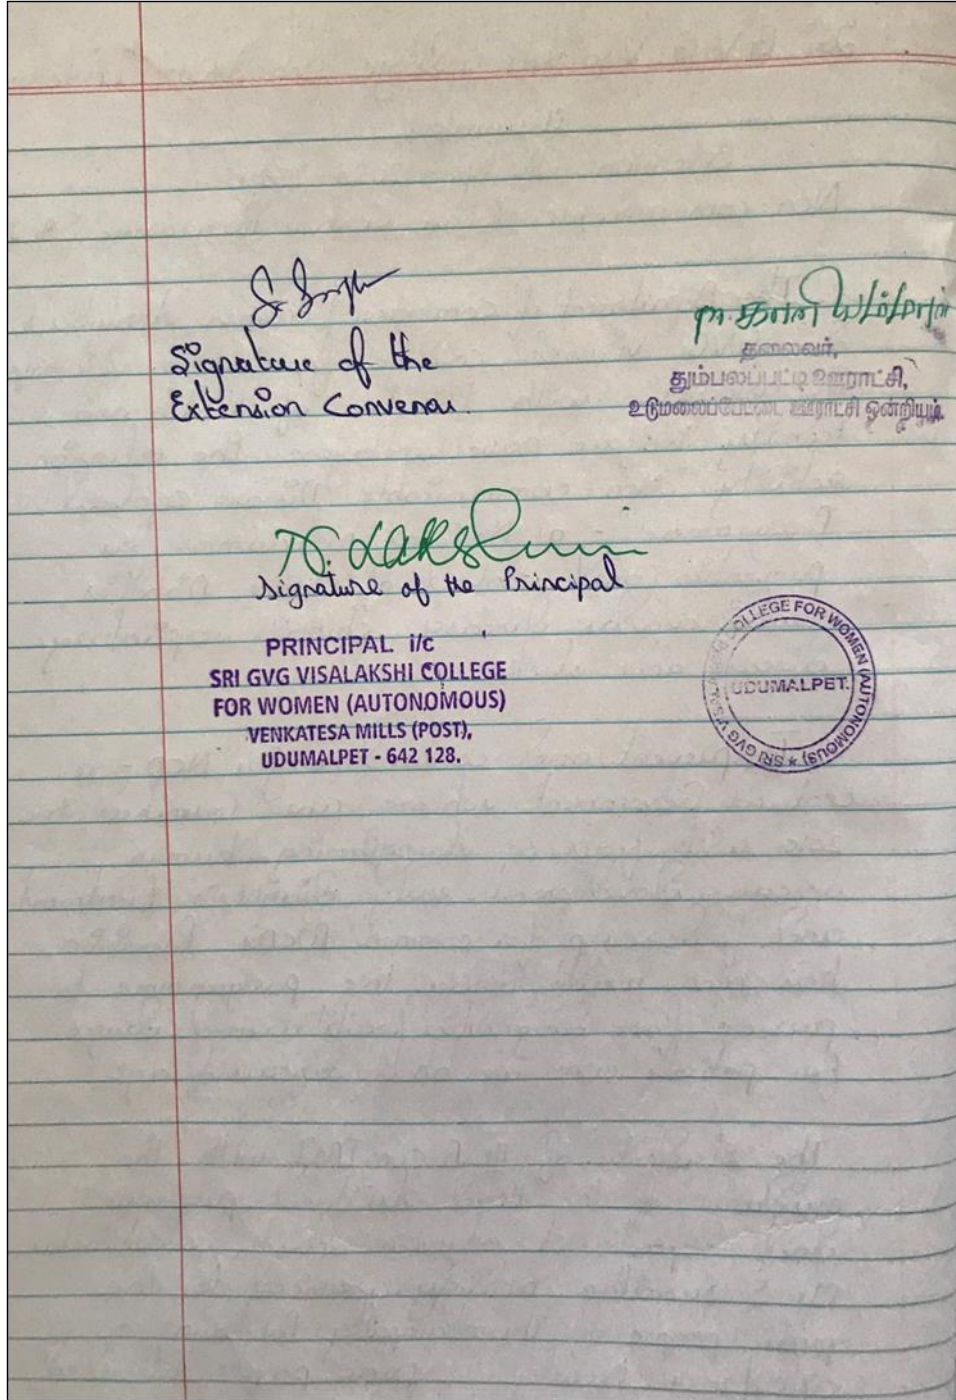 Signature of the
Extension Convenor.
தலைவர்,
தும்பலப்பட்டி ஊராட்சி,
உடுமலைப்பேட்டை ஊராட்சி ஒன்றியம்.
N. Lakshmi
Signature of the Principal
PRINCIPAL i/c
SRI GVG VISALAKSHI COLLEGE
FOR WOMEN (AUTONOMOUS)
VENKATESA MILLS (POST),
UDUMALPET - 642 128.
SRI GVG VISALAKSHI COLLEGE FOR WOMEN (AUTONOMOUS) *
UDUMALPET.